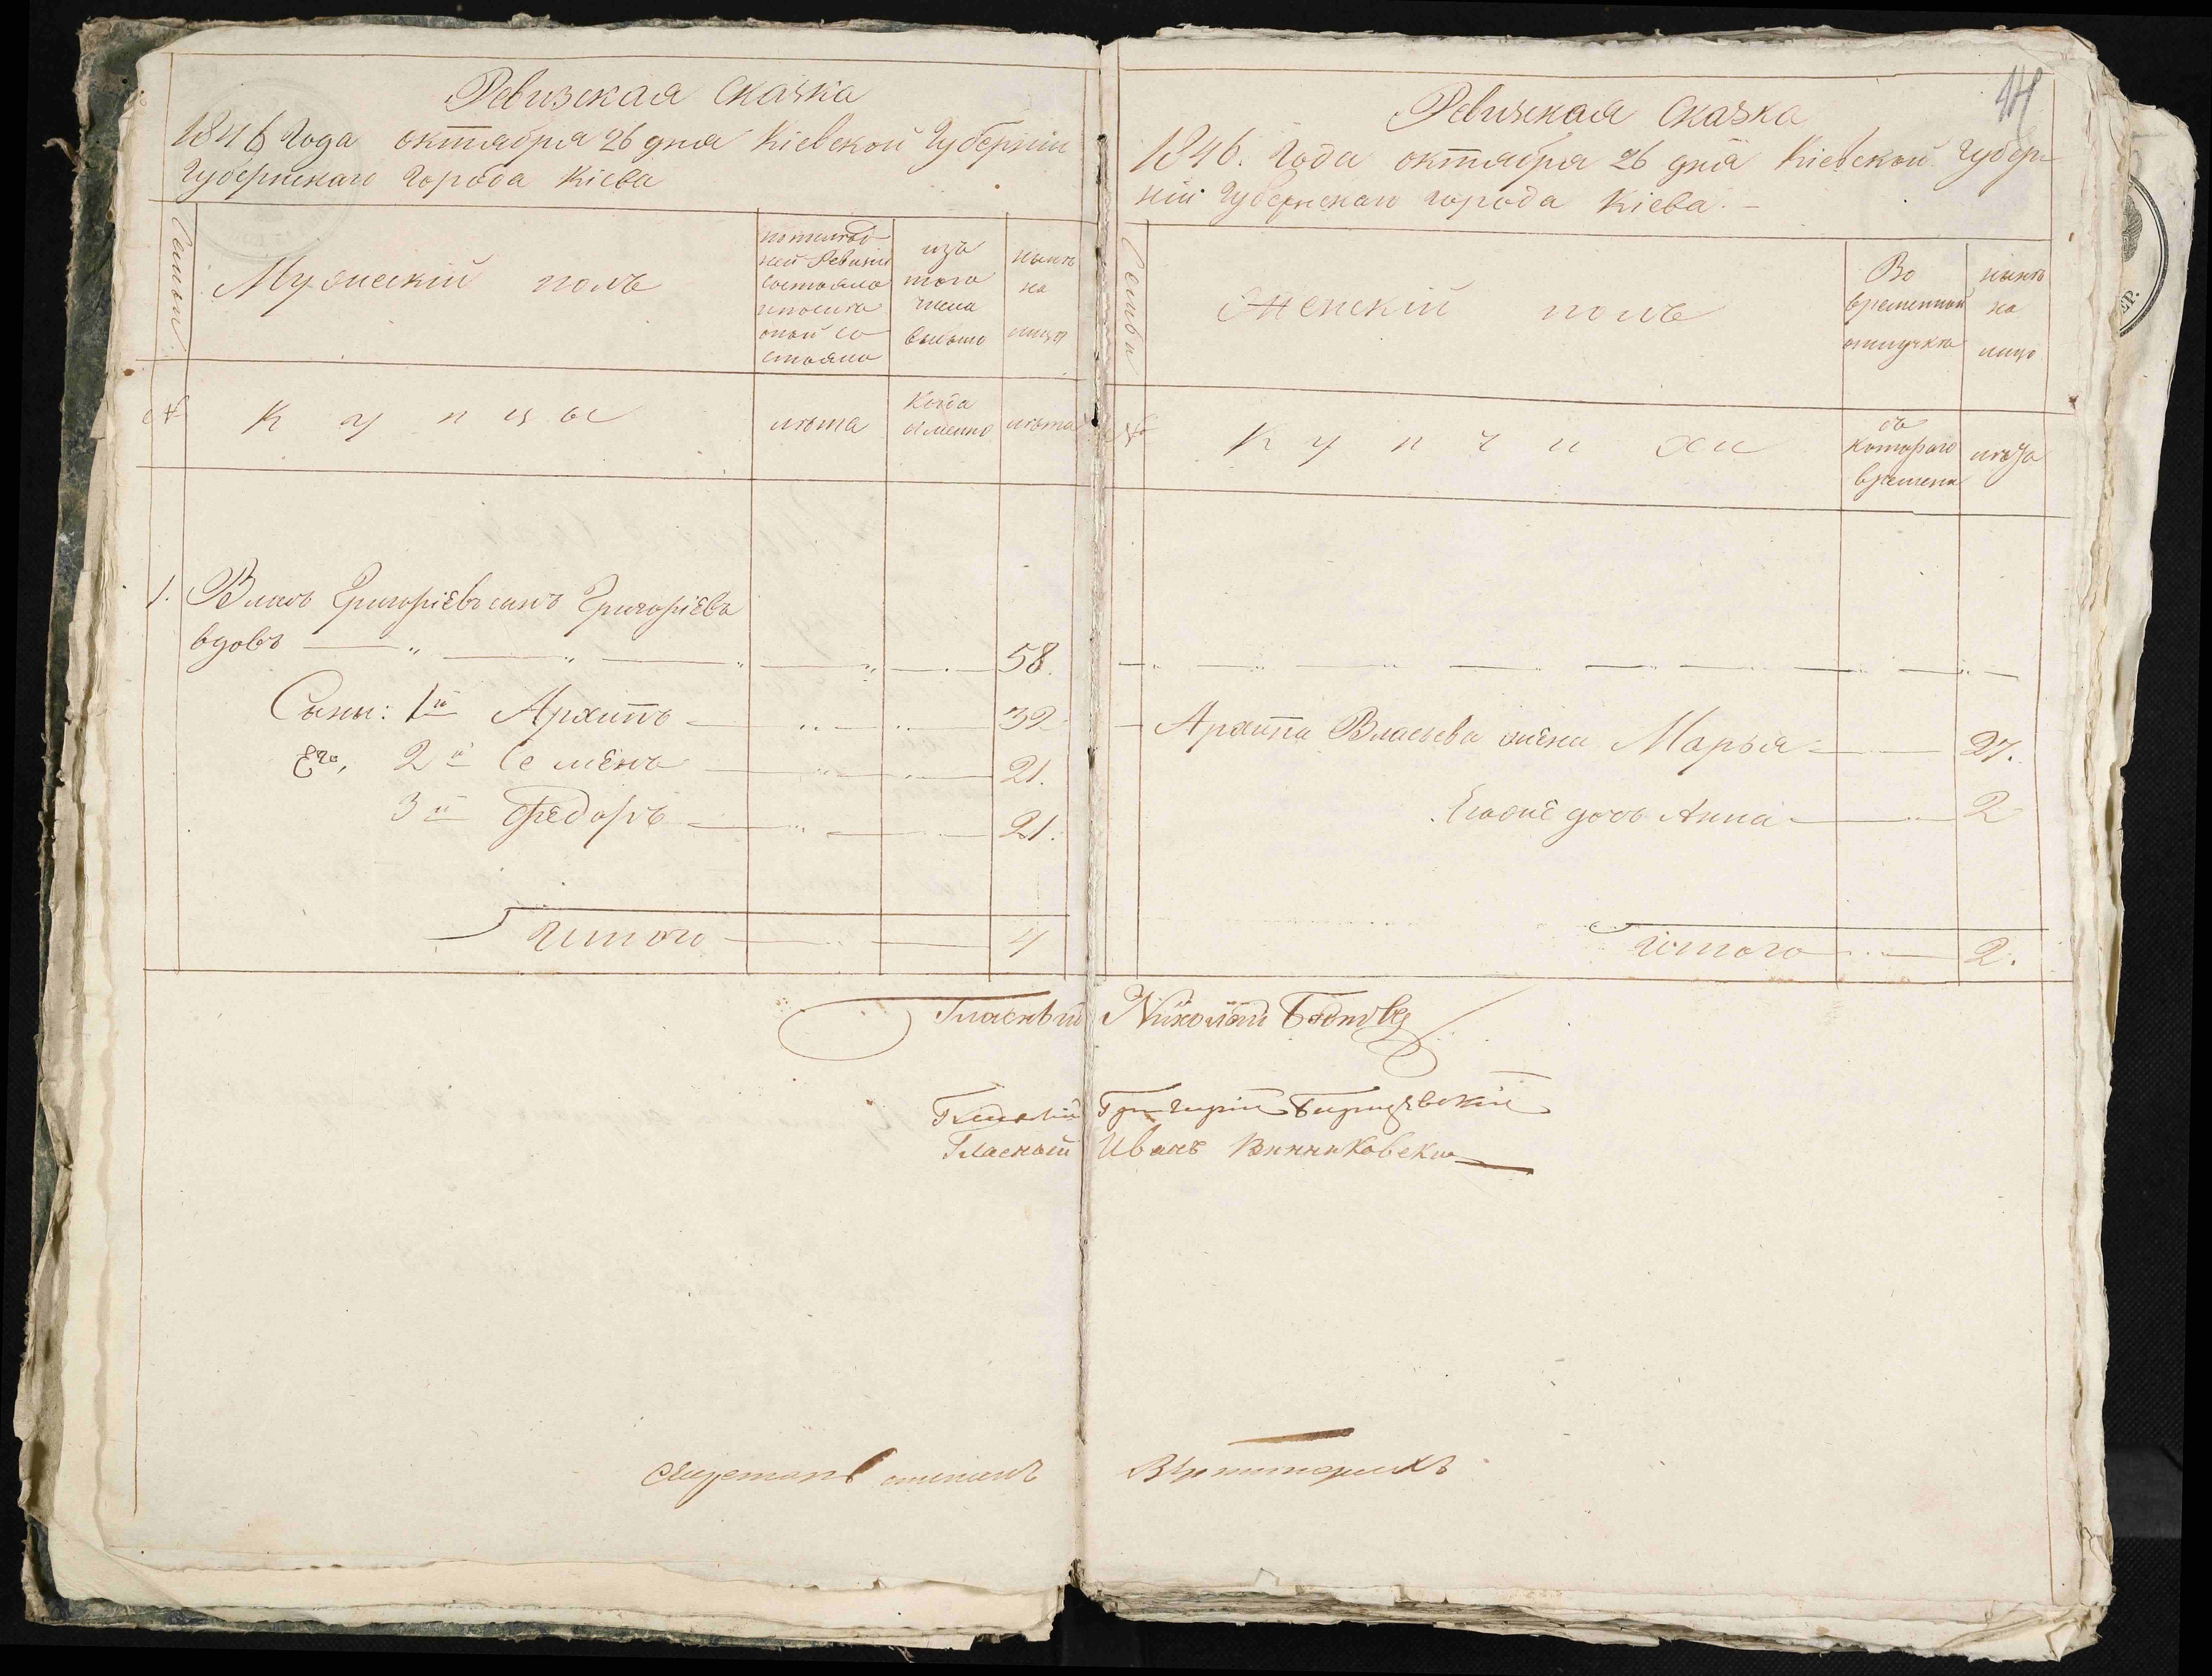 Ревизская сказка
1846 Года октября 26 дня Кіевской Губерніи
Губернскаго Города Кіева
Семьи
Мужескій полъ
по послѣд-
ней Ревизіи
состояло
и послѣ
оной со
стояло
изъ
того
числа
выбыло
нынѣ
на
лицо
№
Купцы
лѣта
Когда
именно
лѣта
1. Власъ Григоріевъ сынъ Григоріевъ
вдовъ 58.
Сыны: 1й Архипъ 32
Его, 2й Семёнъ 21.
3й Федоръ 21.
Итого 4
Ревизская сказка
1846. Года октября 26 дня Кіевской Губер-
ніи Губернскаго города Кіева.
Семьи
Женскій полъ
Во
временной
отлучкѣ
нынѣ
на
лицо
№
Купчихи
съ
котораго
времени
лѣта
Архипа Власьева жена Марья 27.
Его же дочь Анна 2
Итого 2.
Гласный Николай
Гласный Григорій
Гласный Иванъ Винниковскій